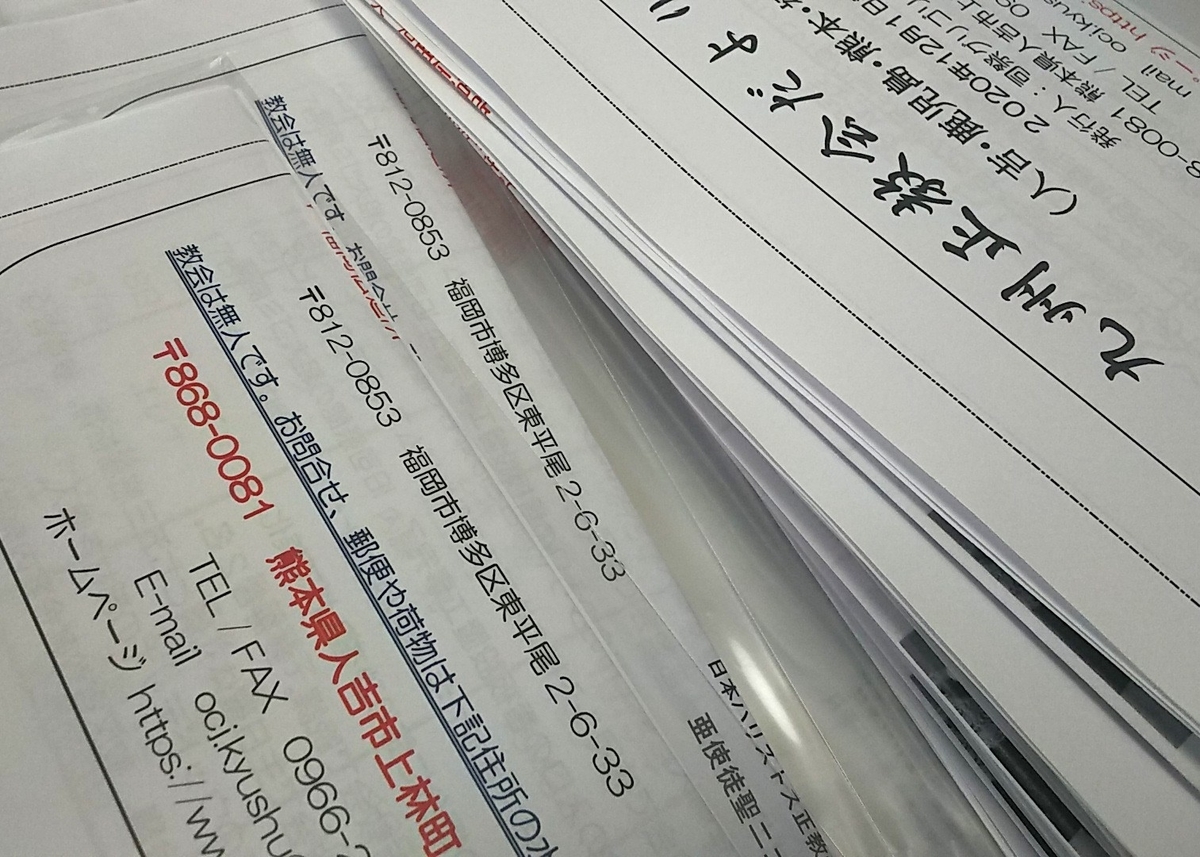 九州正教会だより
(人吉・鹿児島・熊本・
2020年12月1日
発行人:司祭グリゴリ
8-0081 熊本県人吉市上
TEL / FAX 09
mail ocikyus
ージ https
〒812-0853 福岡市博多区東平尾2-6-33
教会は無人です
〒812-0853 福岡市博多区東平尾2-6-33
教会は無人です。お問合せ、郵便や荷物は下記住所の
〒868-0081 熊本県人吉市上林町
TEL / FAX 0966-2
E-mail ocj.kyushu
ホームページ https://ww
日本ハリストス正教
亜使徒聖ニ